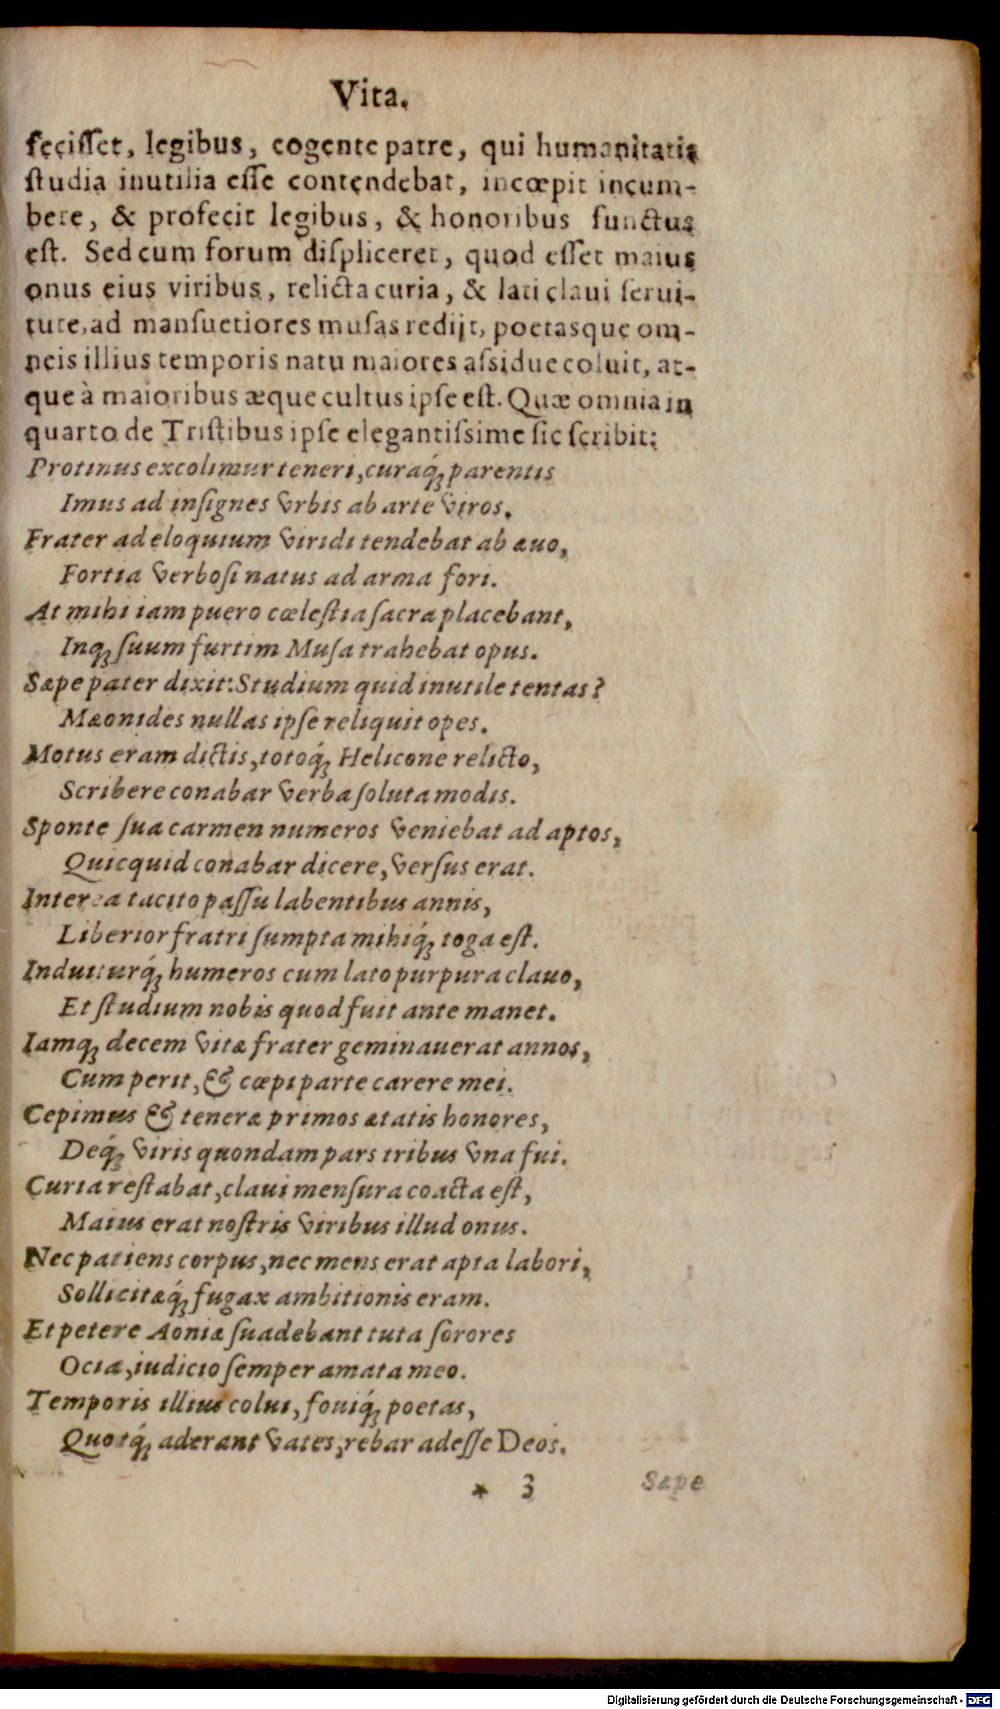 Vita.
feciſſet, legibus, cogente patre, qui humanitatis
ſtudia inutilia eſſe contendebat, incœpit incum-
bere, & profecit legibus, & honoribus functus
eſt. Sed cum forum diſpliceret, quod eſſet maius
onus eius viribus, relicta curia, & lati claui ſerui-
tute, ad manſuetiores muſas redijt, poetasque om-
neis illius temporis natu maiores aſsidue coluit, at-
que à maioribus æque cultus ipſe eſt. Quæ omnia in
quarto de Triſtibus ipſe elegantiſsime ſic ſcribit:
Protinus excolimur teneri, curaq́; parentis
Imus ad inſignes vrbis ab arte viros.
Frater ad eloquium viridi tendebat ab æuo,
Fortia verboſi natus ad arma fori.
At mihi iam puero cœleſtia ſacra placebant,
Inq; ſuum furtim Muſa trahebat opus.
Sæpe pater dixit: Studium quid inutile tentas?
Mæonides nullas ipſe reliquit opes.
Motus eram dictis, totoq́; Helicone relicto,
Scribere conabar verba ſoluta modis.
Sponte ſua carmen numeros veniebat ad aptos,
Quicquid conabar dicere, verſus erat.
Interea tacito paſſu labentibus annis,
Liberior fratri ſumpta mihiq́; toga eſt.
Induiturq́; humeros cum lato purpura clauo,
Et ſtudium nobis quod fuit ante manet.
Iamq; decem vitæ frater geminauerat annos,
Cum perit, & cœpi parte carere mei.
Cepimus & teneræ primos ætatis honores,
Deq́; viris quondam pars tribus vna fui.
Curia reſtabat, claui menſura coacta eſt,
Maius erat noſtris viribus illud onus.
Nec patiens corpus, nec mens erat apta labori,
Sollicitæq́; fugax ambitionis eram.
Et petere Aoniæ ſuadebant tuta ſorores
Ocia, iudicio ſemper amata meo.
Temporis illius colui, fouiq́; poetas,
Quotq́; aderant vates, rebar adeſſe Deos.
* 3 Sæpe
Digitalisierung gefördert durch die Deutsche Forschungsgemeinschaft - DFG